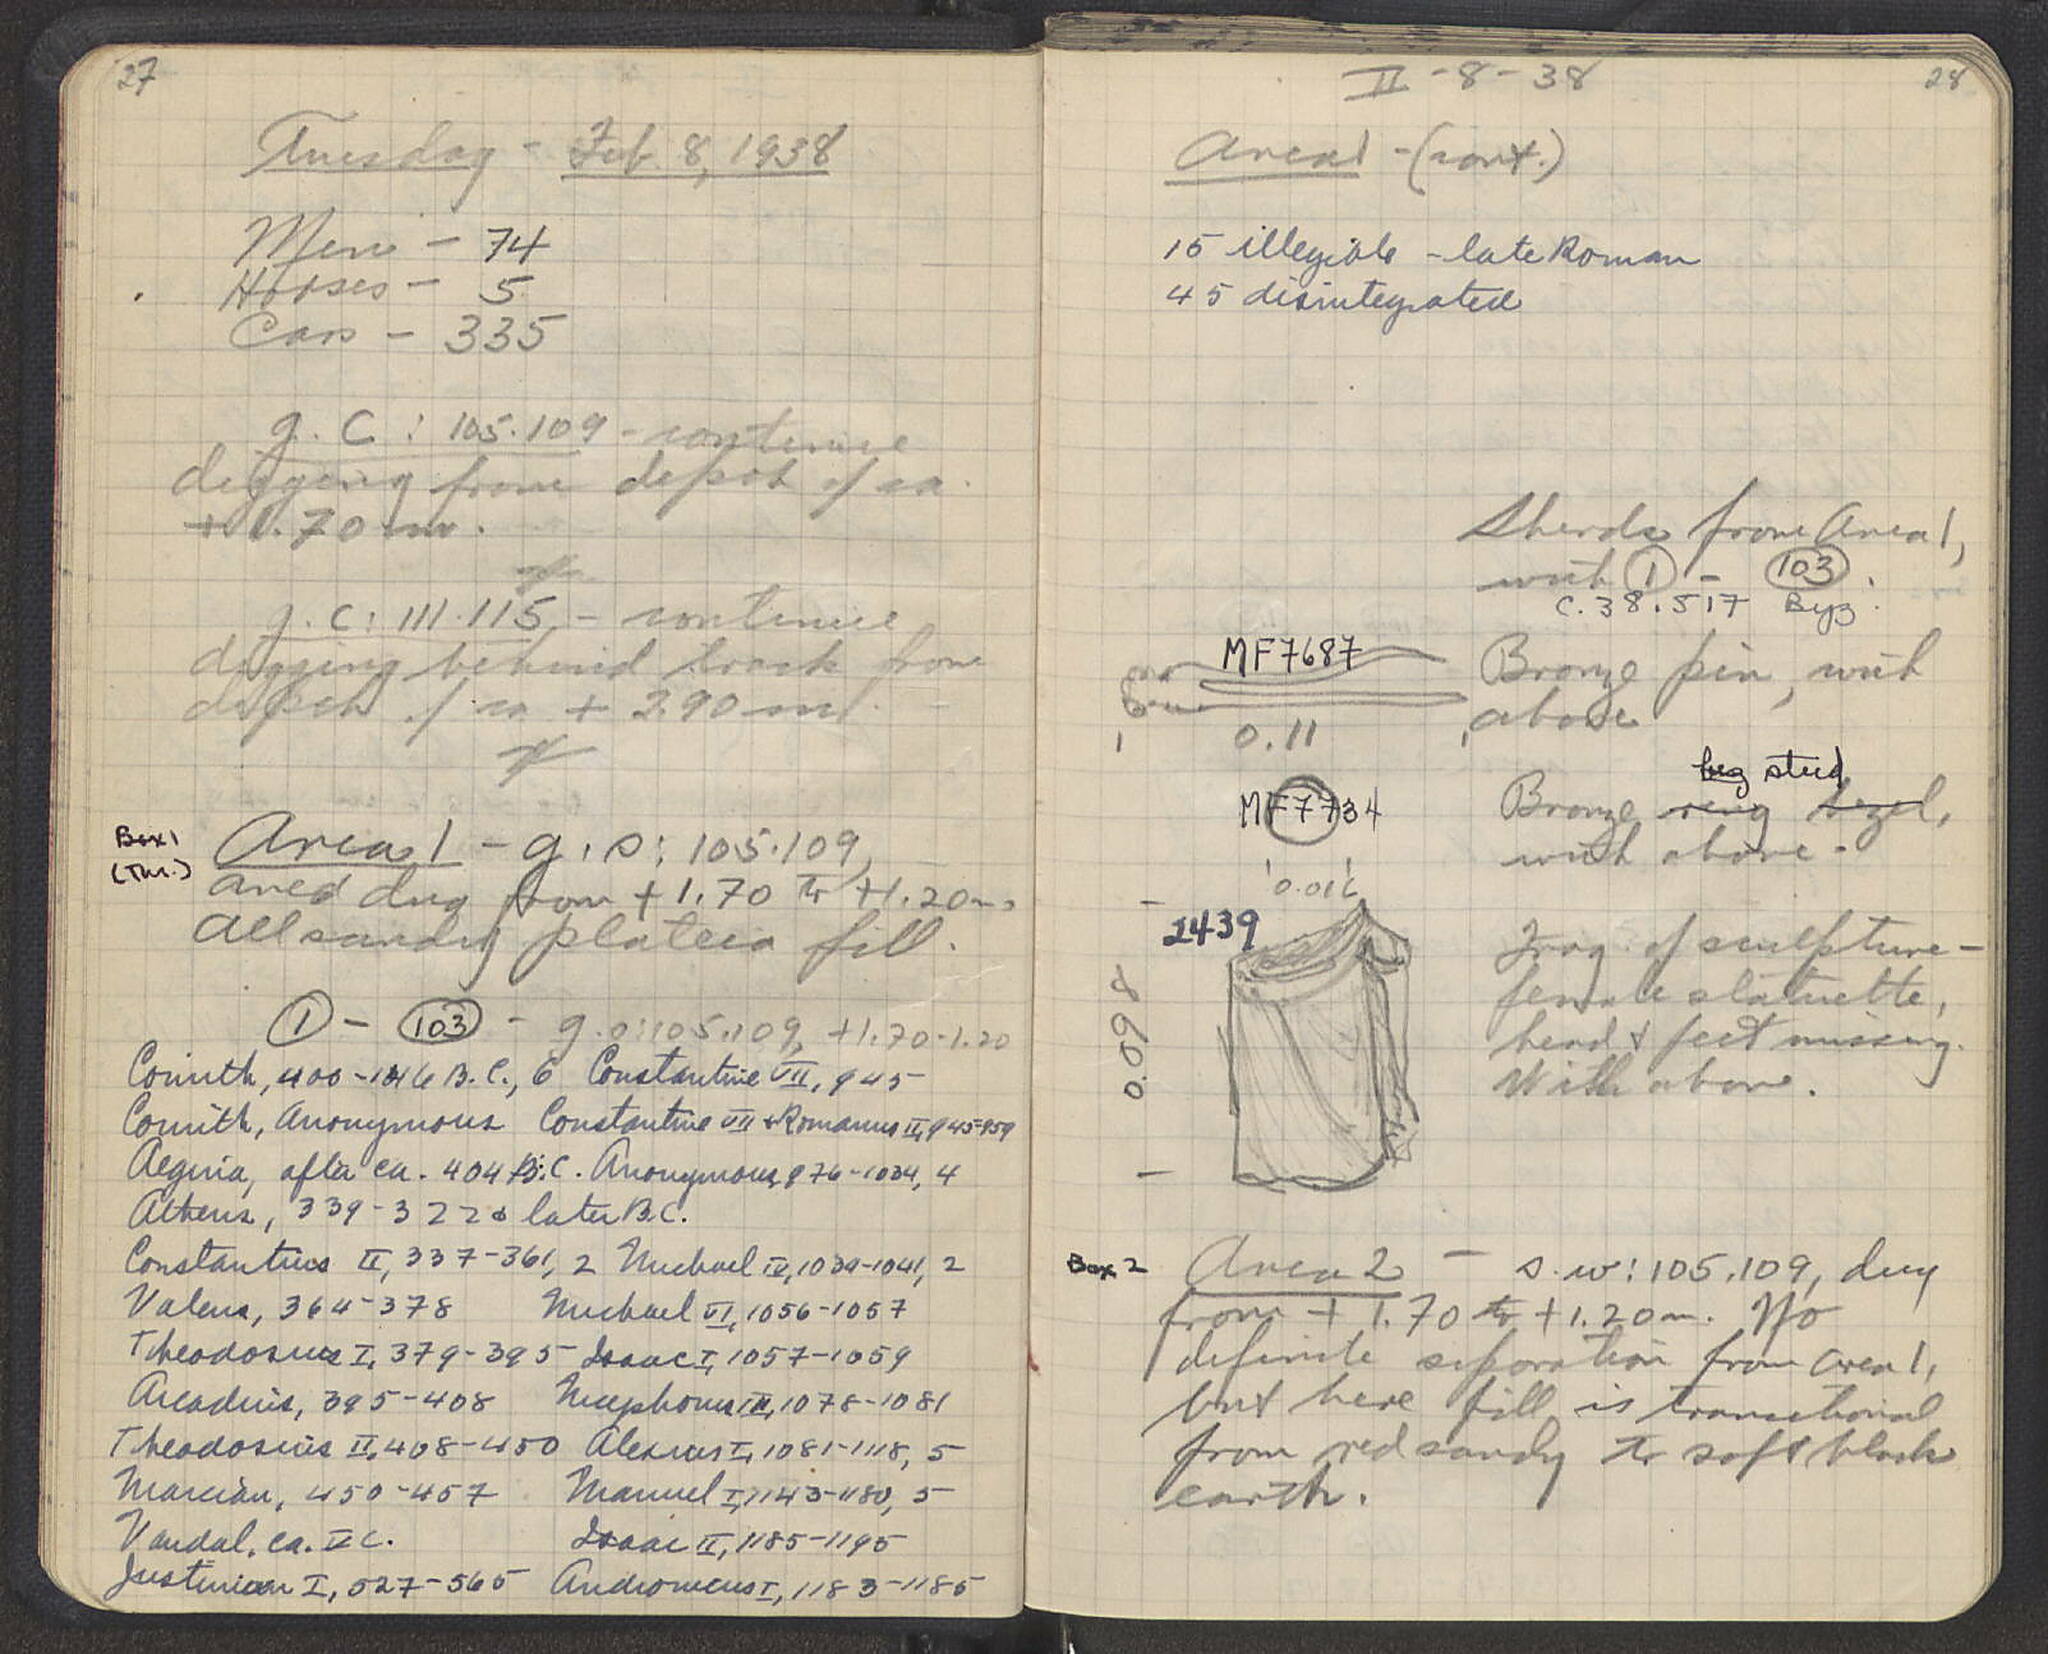 27
Tuesday - Feb. 8, 1938
Men - 74
Horses - 5
Cars - 335
g. C: 105.109 - continue
digging from depth of ca.
+ 1.70 m.
g. C: 111.115, - continue
digging behind track from
depth of ca + 2.90 m.
Box 1
(Thr.)
Area 1 - g. s: 105.109,
area dug from +1.70 to +1.20 m.
All sandy plateia fill.
① - (103) - g. s: 105.109, +1.70-1.20
Corinth, 400-146 B.C., 6 Constantine VII, 945
Corinth, Anonymous Constantine VII & Romanus II, 945-959
Aegina, after ca. 404 B.C. Anonymous, 976-1034, 4
Athens, 339-322 & later B.C.
Constantius II, 337-361, 2 Michael IV, 1034-1041, 2
Valens, 364-378 Michael VI, 1056-1057
Theodosius I, 379-395 Isaac I, 1057-1059
Arcadius, 395-408 Nicephorus III, 1078-1081
Theodosius II, 408-450 Alexius I, 1081-1118, 5
Marcian, 450-457 Manuel I, 1143-1180, 5
Vandal, ca. V C. Isaac II, 1185-1195
Justinian I, 527-565 Andronicus I, 1183-1185
II - 8 - 38
28
Area 1 - (cont.)
15 illegible - late Roman
45 disintegrated
Sherds from Area 1,
with ① - (103).
C.38.517 Byz.
MF7687
0.11
Bronze pin, with
above
MF7734
0.016
stud
Bronze ring bezel,
with above.
2439
0.098
Frag. of sculpture -
female statuette,
head & feet missing.
With above.
Box 2
Area 2 - s.w: 105.109, dug
from + 1.70 to +1.20 m. No
definite separation from Area 1,
but here fill is transitional
from red sandy to soft black
earth.